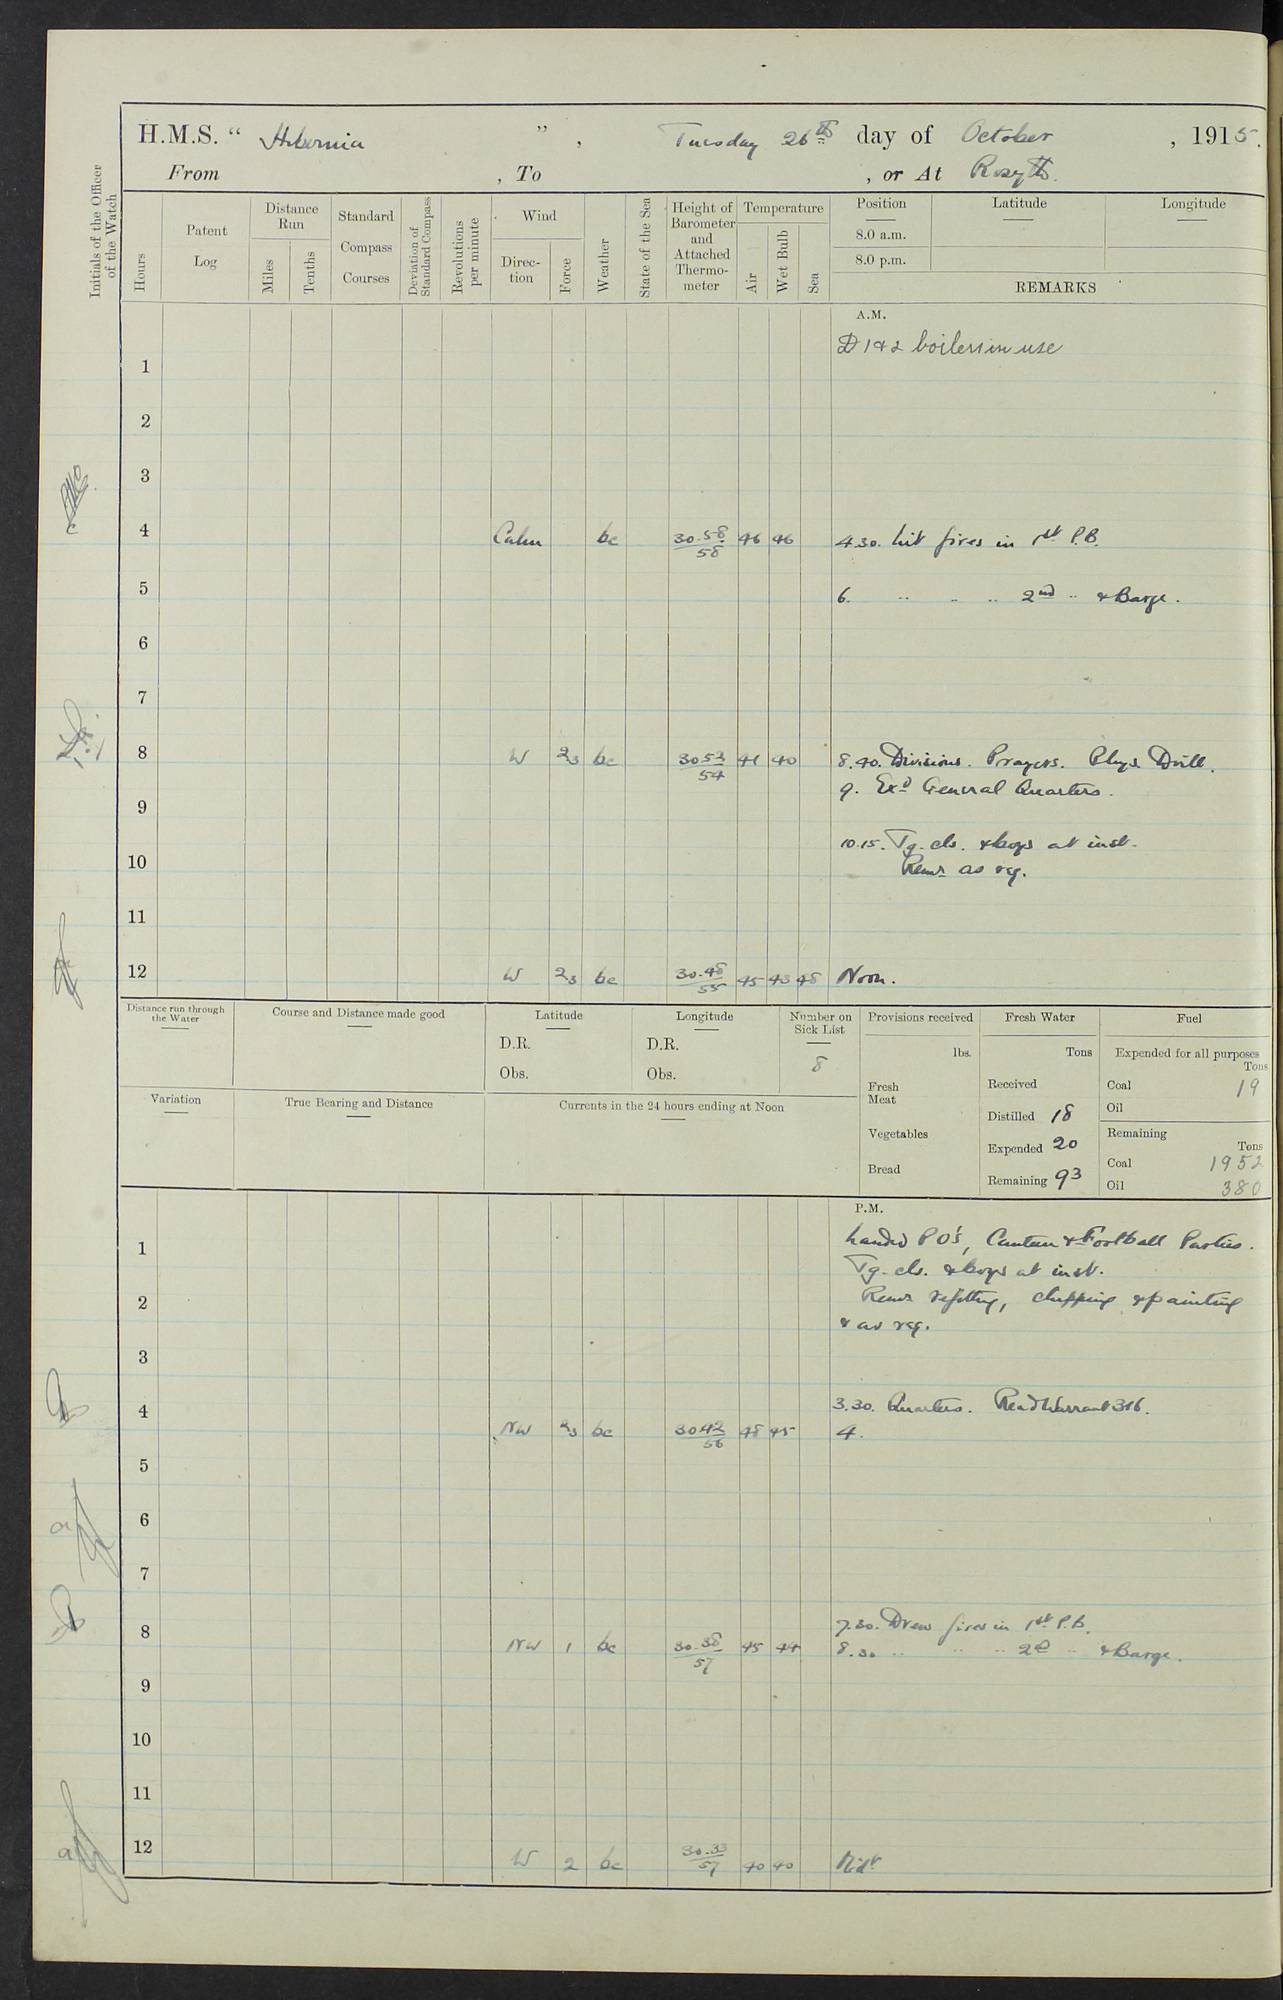 H.M.S. “ Hibernia ” , Tuesday 26th day of October , 1915.
From , To , or At Rosyth.
Initials of the Officer of the Watch
Hours
Patent Log
Distance Run
Miles
Tenths
Standard Compass Courses
Deviation of Standard Compass
Revolutions per minute
Wind
Direc-tion
Force
Weather
State of the Sea
Height of Barometer and Attached Thermo-meter
Temperature
Air
Wet Bulb
Sea
Position
8.0 a.m.
8.0 p.m.
Latitude
Longitude
REMARKS
A.M.
D 1 & 2 boilers in use
1
2
3
4 Calm bc 30.58 58 46 46 4.30. Lit fires in 1st P.B.
5 6. " " " 2nd " & Barge.
6
7
8 W 2/3 bc 30.53 54 41 40 8.40. Divisions. Prayers. Phys. Drill.
9. Exd General Quarters.
9
10.15. Tg. cls. & boys at inst.
10 Remr as req.
11
12 W 2/3 bc 30.48 55 45 43 48 Noon.
Distance run through the Water
Course and Distance made good
Latitude
D.R.
Obs.
Longitude
D.R.
Obs.
Number on Sick List
8
Provisions received
lbs.
Fresh Meat
Vegetables
Bread
Fresh Water
Tons
Received
Distilled 18
Expended 20
Remaining 93
Fuel
Expended for all purposes
Tons
Coal 19
Oil
Remaining
Tons
Coal 1952
Oil 380
Variation
True Bearing and Distance
Currents in the 24 hours ending at Noon
P.M.
Landed PO's, Canteen & Football Parties.
1
Tg. cls. & boys at inst.
2 Remr refitting, chipping & painting
& as req.
3
3.30. Quarters. Read Warrant 316.
4 NW 2/3 bc 30.42 56 48 45 4.
5
6
7
7.30. Drew fires in 1st P.B.
8 NW 1 bc 30.38 57 45 44 8.30 " " " 2d " & Barge.
9
10
11
12 W 2 bc 30.33 57 40 40 Midt